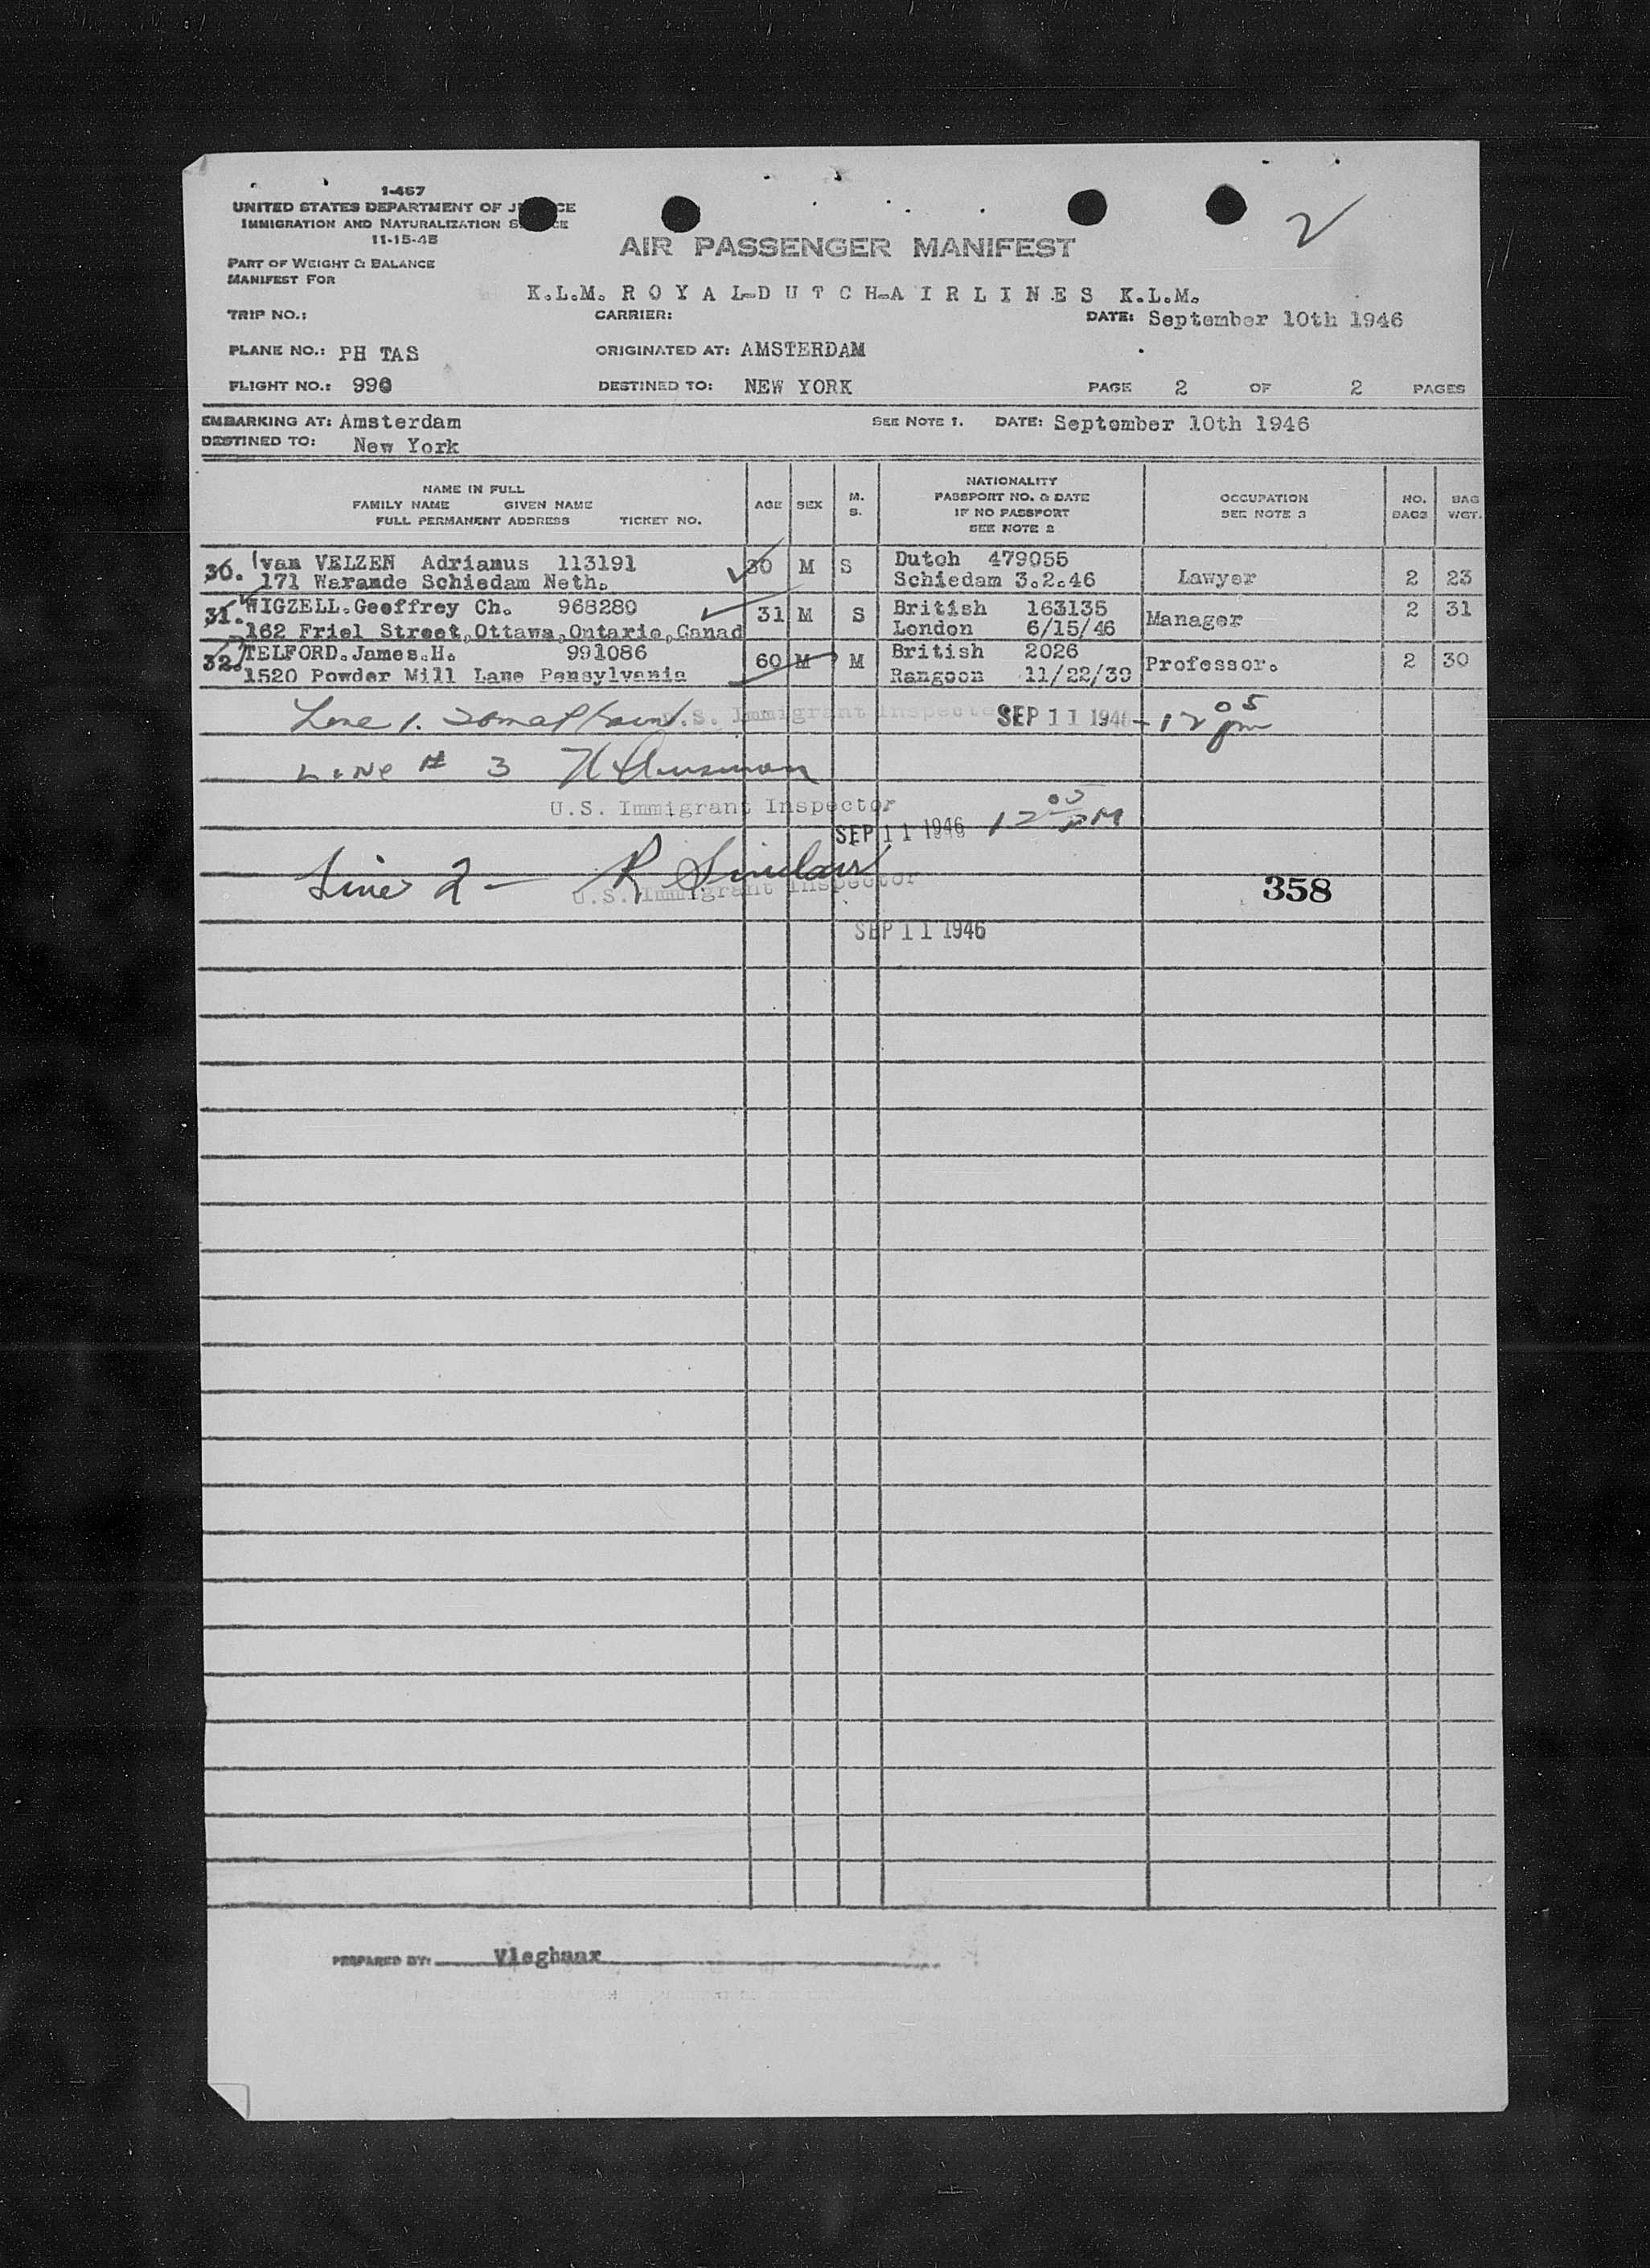 1-467
UNITED STATES DEPARTMENT OF J CE
IMMIGRATION AND NATURALIZATION S CE
11-15-45
2
AIR PASSENGER MANIFEST
PART OF WEIGHT & BALANCE
MANIFEST FOR
K.L.M. R O Y A L-D U T C H-A I R L I N E S K.L.M.
TRIP NO.: CARRIER: DATE: September 10th 1946
PLANE NO.: PH TAS ORIGINATED AT: AMSTERDAM
FLIGHT NO.: 990 DESTINED TO: NEW YORK PAGE 2 OF 2 PAGES
EMBARKING AT: Amsterdam SEE NOTE 1. DATE: September 10th 1946
DESTINED TO: New York
NAME IN FULL
FAMILY NAME GIVEN NAME
FULL PERMANENT ADDRESS TICKET NO.
AGE
SEX
M.
S.
NATIONALITY
PASSPORT NO. & DATE
IF NO PASSPORT
SEE NOTE 2
OCCUPATION
SEE NOTE 3
NO.
BAGS
BAG
WGT.
30. van VELZEN Adrianus 113191 30 M S Dutch 479055 Lawyer 2 23
171 Warande Schiedam Neth. Schiedam 3.2.46
31. WIGZELL.Geoffrey Ch. 968280 31 M S British 163135 Manager 2 31
162 Friel Street,Ottawa,Ontario,Canad London 6/15/46
32. TELFORD.James.H. 991086 60 M M British 2026 Professor. 2 30
1520 Powder Mill Lane Pensylvania Rangoon 11/22/39
Line 1. U.S. Immigrant Inspector SEP 11 1946 - 12 05 pm
Line # 3
U.S. Immigrant Inspector
SEP 11 1946 12 05 PM
Line 2 - R Sinclair
U.S. Immigrant Inspector
358
SEP 11 1946
PREPARED BY: Vleghaar